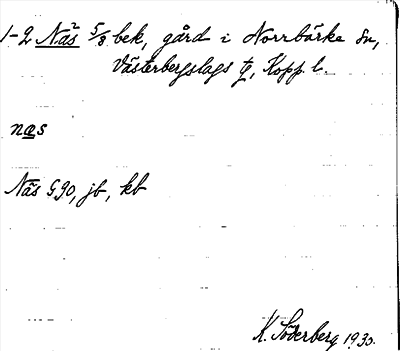 1-2 Näs 5/8 bek, gård i Norrbärke sn,
Västerbergslags tg, Kopp. l.
nas
Näs G90, jb, kb
K. Söderberg 1930.